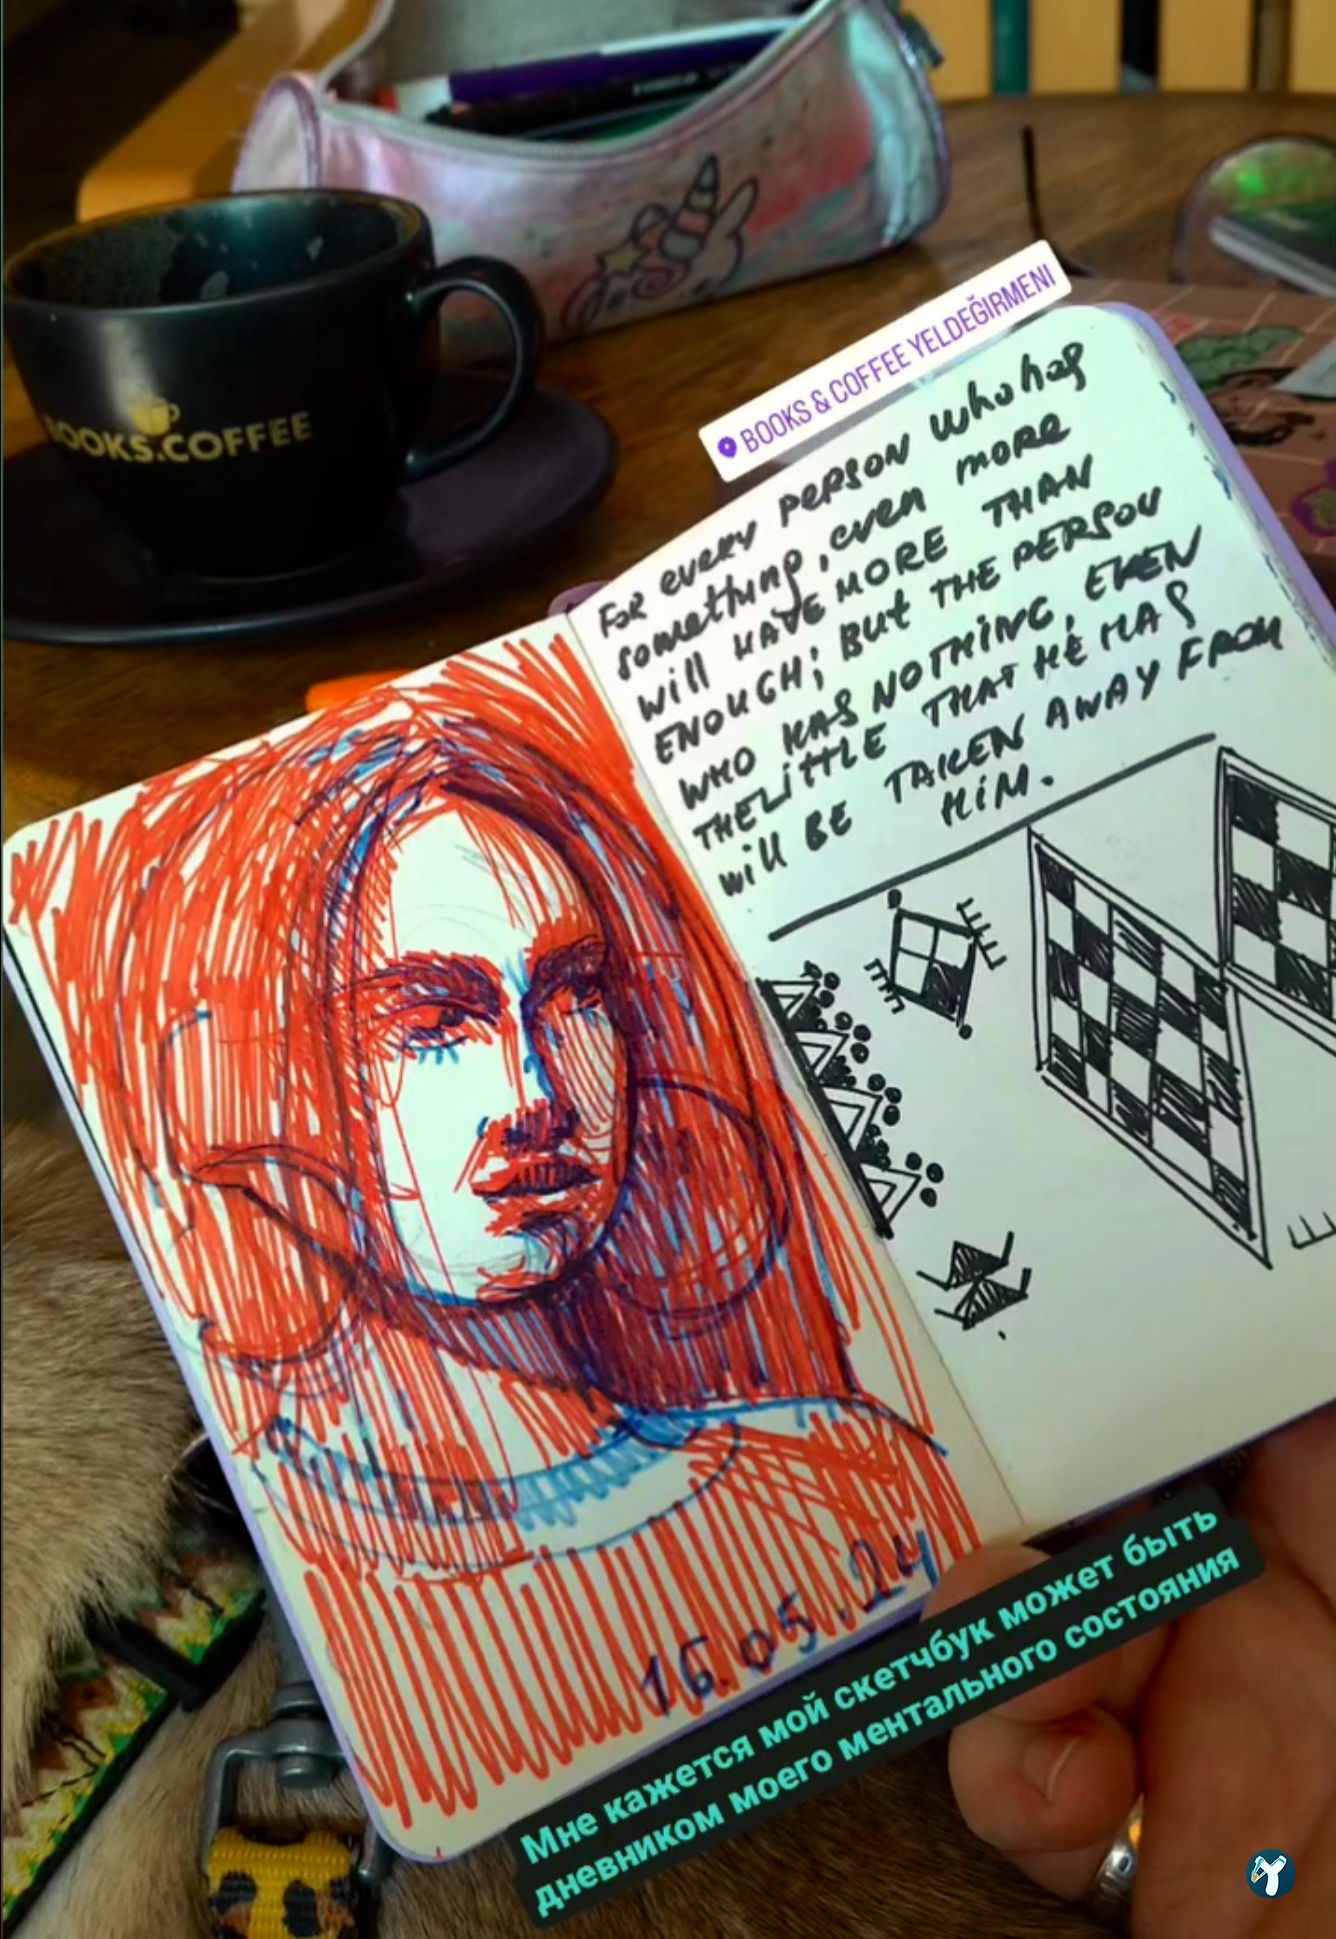 BOOKS.COFFEE
BOOKS & COFFEE YELDEĞİRMENİ
FOR every PERSON who has
something, even more
will HAVE MORE THAN
ENOUGH; BUT THE PERSON
WHO HAS NOTHING, EVEN
THE LITTLE THAT HE HAS
will BE TAKEN AWAY FROM
HIM.
16.05.24
Мне кажется мой скетчбук может быть
дневником моего ментального состояния